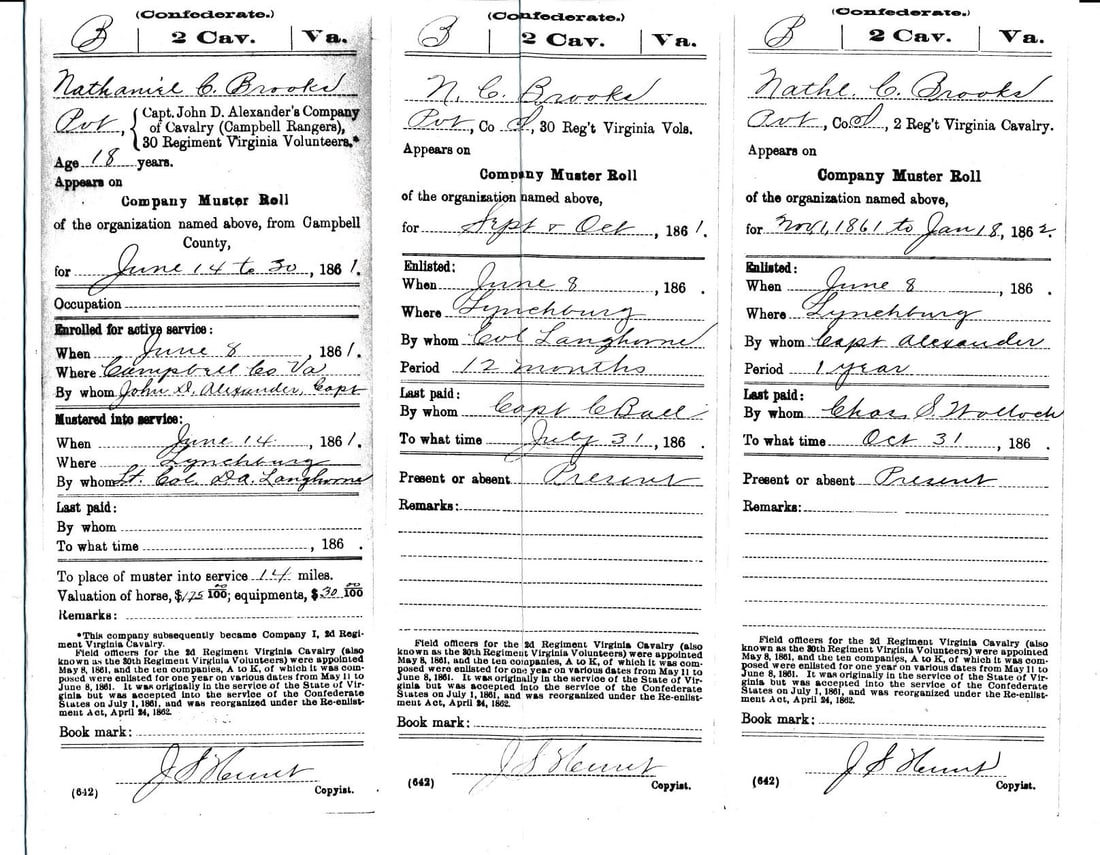 (Confederate.)
B | 2 Cav. | Va.
Nathaniel C. Brooks
Pvt, { Capt. John D. Alexander's Company
of Cavalry (Campbell Rangers),
30 Regiment Virginia Volunteers.*
Age 18 years.
Appears on
Company Muster Roll
of the organization named above, from Campbell
County,
for June 14 to 30, 1861.
Occupation
Enrolled for active service:
When June 8, 1861.
Where Campbell Co Va
By whom John D. Alexander, Capt
Mustered into service:
When June 14, 1861.
Where Lynchburg
By whom Lt. Col. D.A. Langhorne
Last paid:
By whom
To what time , 186 .
To place of muster into service 14 miles.
Valuation of horse, $175 00/100; equipments, $30 00/100
Remarks:
*This company subsequently became Company I, 2d Regi-
ment Virginia Cavalry.
Field officers for the 2d Regiment Virginia Cavalry (also
known as the 30th Regiment Virginia Volunteers) were appointed
May 8, 1861, and the ten companies, A to K, of which it was com-
posed were enlisted for one year on various dates from May 11 to
June 8, 1861. It was originally in the service of the State of Vir-
ginia but was accepted into the service of the Confederate
States on July 1, 1861, and was reorganized under the Re-enlist-
ment Act, April 24, 1862.
Book mark:
J S Hunt
(642) Copyist.
(Confederate.)
B | 2 Cav. | Va.
N. C. Brooks
Pvt, Co , 30 Reg't Virginia Vols.
Appears on
Company Muster Roll
of the organization named above,
for Sept & Oct, 1861.
Enlisted:
When June 8, 186 .
Where Lynchburg
By whom Col Langhorne
Period 12 months
Last paid:
By whom Capt C Ball
To what time July 31, 186 .
Present or absent Present
Remarks:
Field officers for the 2d Regiment Virginia Cavalry (also
known as the 30th Regiment Virginia Volunteers) were appointed
May 8, 1861, and the ten companies, A to K, of which it was com-
posed were enlisted for one year on various dates from May 11 to
June 8, 1861. It was originally in the service of the State of Vir-
ginia but was accepted into the service of the Confederate
States on July 1, 1861, and was reorganized under the Re-enlist-
ment Act, April 24, 1862.
Book mark:
J S Hunt
(642) Copyist.
(Confederate.)
B | 2 Cav. | Va.
Nathl. C. Brooks
Pvt, Co. , 2 Reg't Virginia Cavalry.
Appears on
Company Muster Roll
of the organization named above,
for Nov 1, 1861 to Jan 18, 1862.
Enlisted:
When June 8, 186 .
Where Lynchburg
By whom Capt Alexander
Period 1 year
Last paid:
By whom Chas S Wolloch
To what time Oct 31, 186 .
Present or absent Present
Remarks:
Field officers for the 2d Regiment Virginia Cavalry (also
known as the 30th Regiment Virginia Volunteers) were appointed
May 8, 1861, and the ten companies, A to K, of which it was com-
posed were enlisted for one year on various dates from May 11 to
June 8, 1861. It was originally in the service of the State of Vir-
ginia but was accepted into the service of the Confederate
States on July 1, 1861, and was reorganized under the Re-enlist-
ment Act, April 24, 1862.
Book mark:
J S Hunt
(642) Copyist.